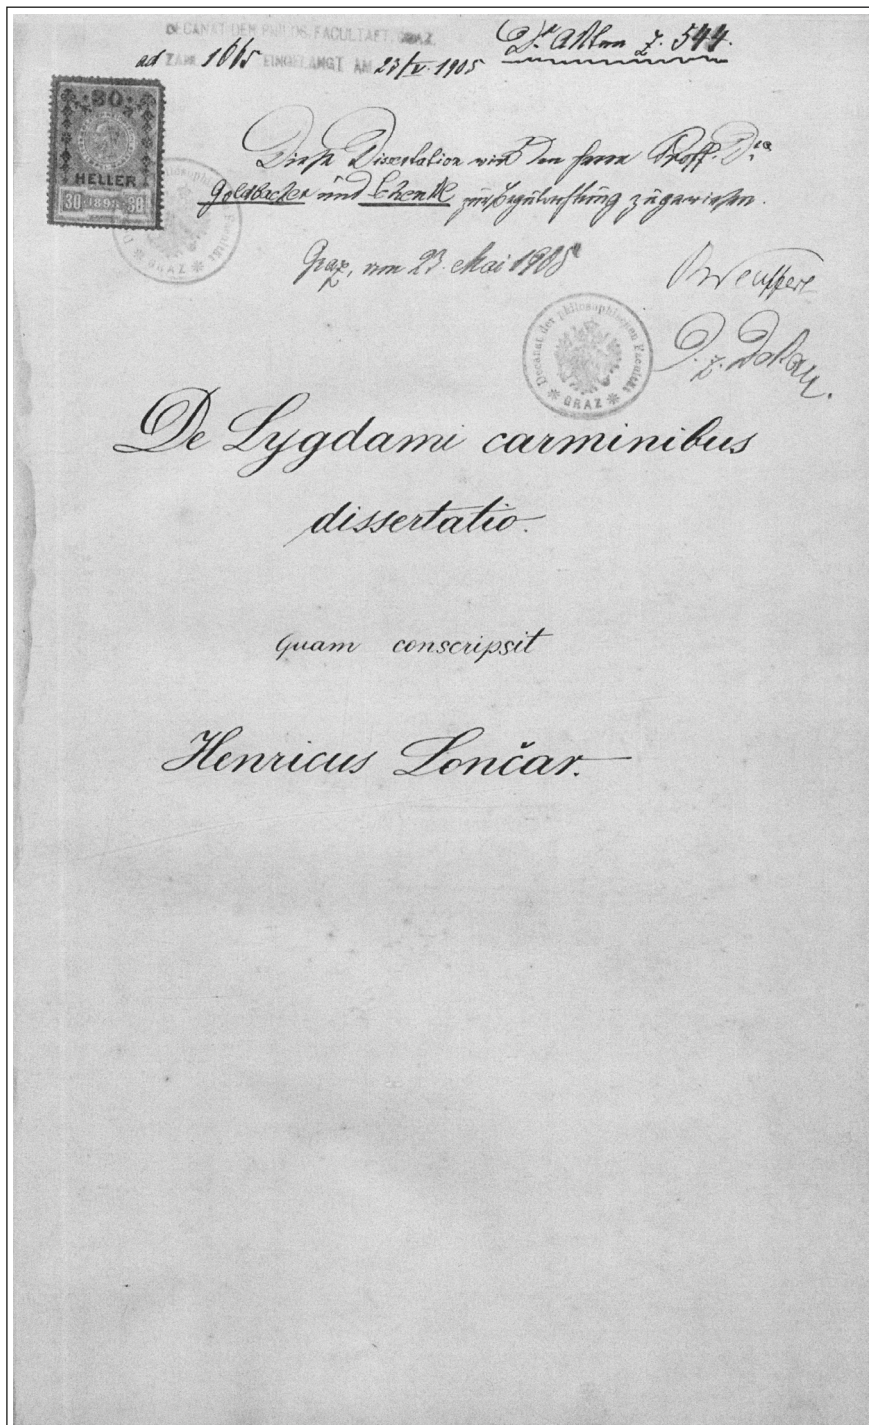 DECANAT DER PHILOS. FACULTAET, GRAZ
Dr Akten Z. 544.
ad ZAHL 1665 EINGELANGT AM 23/V. 1905
30
HELLER
30 1898 30
Diese Dissertation wird den Herren Proff. Dr
Goldbacher und Schenkl zur Begutachtung zugewiesen.
Graz, am 23. Mai 1905
D. z. Dekan.
Decanat der philosophischen Facultät
* GRAZ *
De Lygdami carminibus
dissertatio.
quam conscripsit
Henricus Lončar.